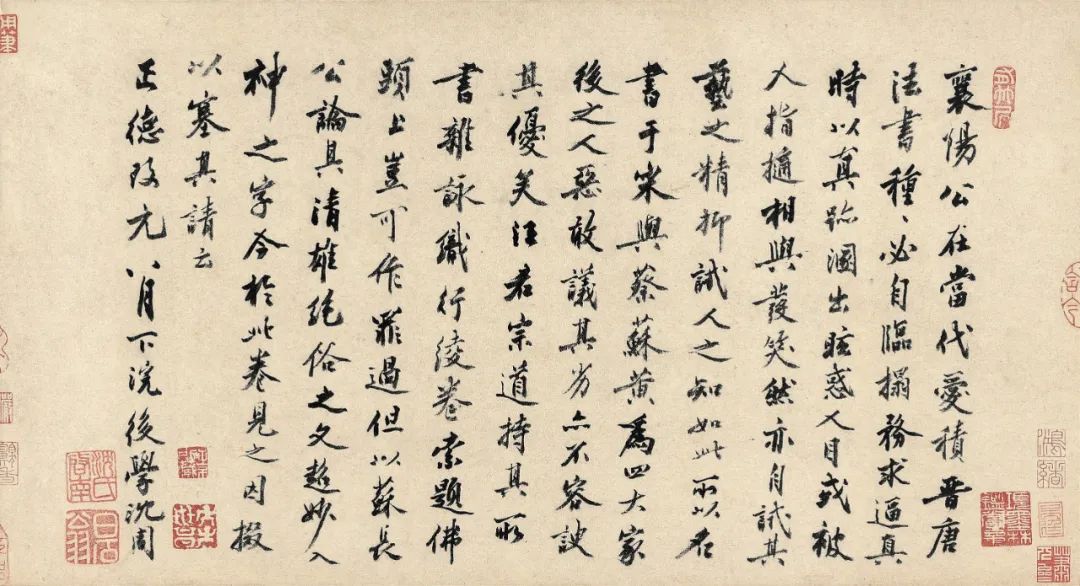 襄陽公在當代愛積晉唐
法書種、必自臨搨務求逼真
時以真跡溷出眩惑人目或被
人指擿相與發笑然亦自試其
藝之精抑試人之知如此所以名
書于宋與蔡蘇黃為四大家
後之人惡敢議其劣亦不容諛
其優矣汪君宗道持其所
書雜詠織行綾卷索題佛
頭上豈可作罪過但以蘇長
公論其清雄絕俗之文超妙入
神之字今於此卷見之因掇
以塞其請云
正德改元八月下浣後學沈周